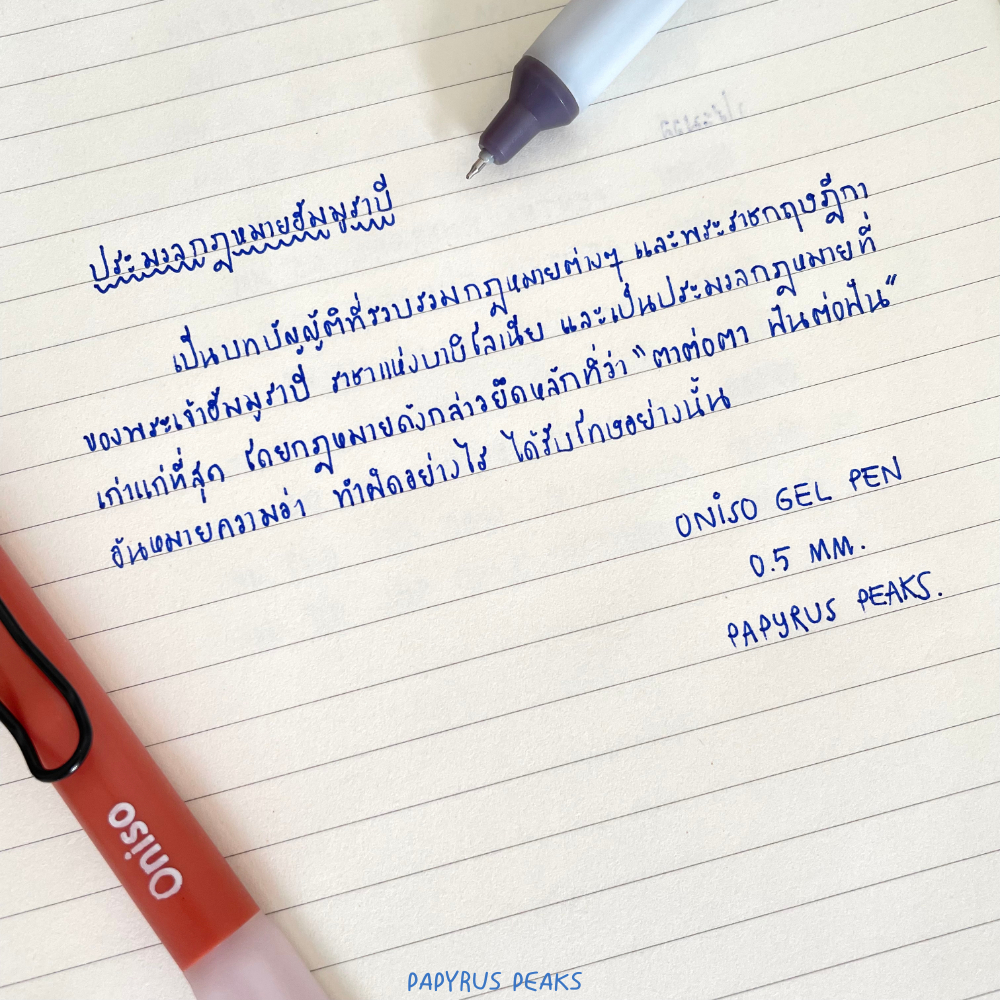 ประมวลกฎหมายฮัมมูราบี
เป็นบทบัญญัติที่รวบรวมกฎหมายต่างๆ และพระราชกฤษฎีกา
ของพระเจ้าฮัมมูราบี ราชาแห่งบาบิโลเนีย และเป็นประมวลกฎหมายที่
เก่าแก่ที่สุด โดยกฎหมายดังกล่าวยึดหลักที่ว่า "ตาต่อตา ฟันต่อฟัน"
อันหมายความว่า ทำผิดอย่างไร ได้รับโทษอย่างนั้น
ONISO GEL PEN
0.5 MM.
PAPYRUS PEAKS.
Oniso
PAPYRUS PEAKS